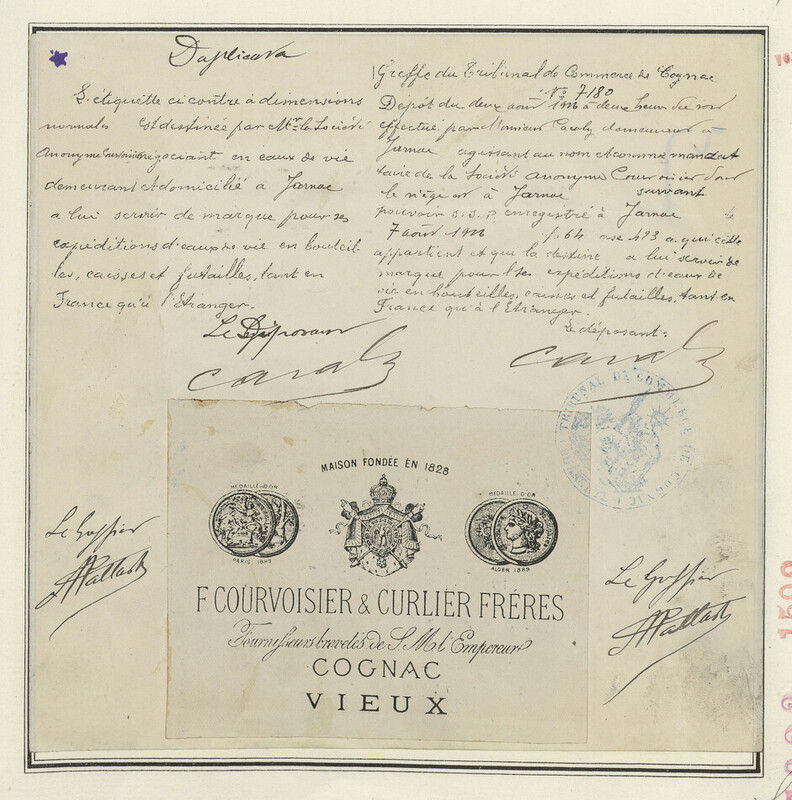 Duplicata
L'étiquette ci contre à dimensions
normales est destinée par Mr. la Société
Anonyme négociant en eaux de vie
demeurant et domicilié à Jarnac
a lui servir de marque pour ses
expéditions d'eaux de vie en bouteil
les, caisses et futailles, tant en
France qu'à l'Etranger.
Le Déposant
Greffe du Tribunal de Commerce de Cognac
No 7180
Dépôt du deux août à deux heures du soir
effectué par Monsieur demeurant à
Jarnac agissant au nom et comme mandat
taire de la Société Anonyme Courvoisier
à Jarnac suivant
pouvoir s.s.p. enregistré à Jarnac le
7 août fo 64 case 493 a qui elle
appartient et qui la destine a lui servir de
marque pour ses expéditions d'eaux de
vie en bouteilles, caisses et futailles, tant en
France qu'à l'Etranger.
Le déposant:
TRIBUNAL DE COMMERCE DE COGNAC
MAISON FONDÉE EN 1828
MÉDAILLE-D'OR
PARIS
MÉDAILLE-D'OR
ALGER
Le Greffier
Le Greffier
F COURVOISIER & CURLIER FRÈRES
Fournisseurs brevetés de S. M. l'Empereur
COGNAC
VIEUX